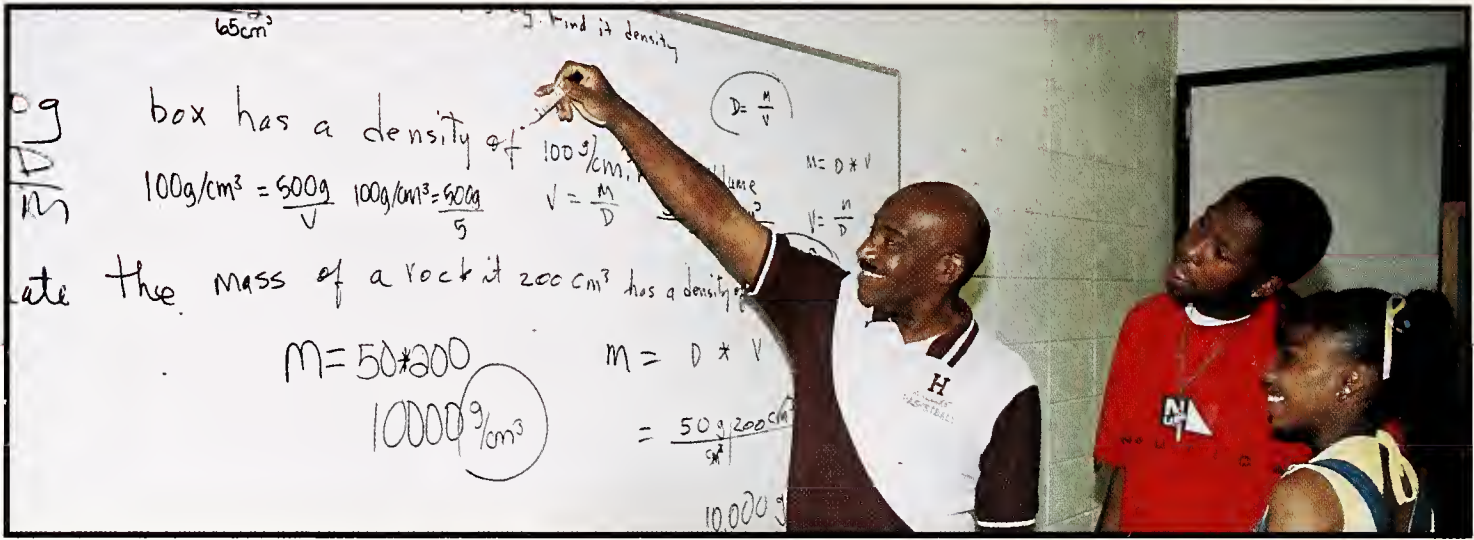 65cm³
find it density
D= M/V
box has a density of 100g/cm
M= D * V
100g/cm³ = 500g/V 100g/cm³ = 500g/5
V = M/D
the mass of a rock it 200 cm³ has a density of
M= 50*200
10000 g/cm³
M = D * V
= 50g 200cm³
cm³
10,000 g
H
BASKETBALL
N